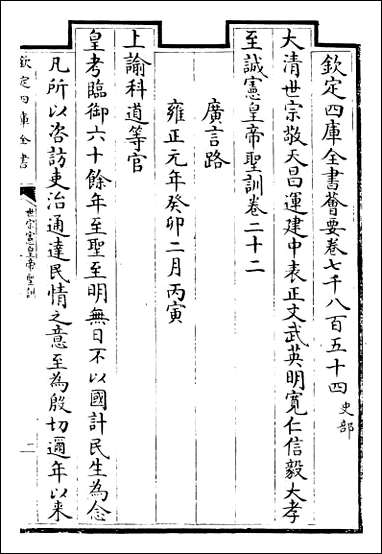 欽定四庫全書薈要卷七千八百五十四 史部
大清世宗敬天昌運建中表正文武英明寬仁信毅大孝
至誠憲皇帝聖訓卷二十二
廣言路
雍正元年癸卯二月丙寅
上諭科道等官
皇考臨御六十餘年至聖至明無日不以國計民生為念
凡所以咨訪吏治通達民情之意至為殷切邇年以來
欽定四庫全書
世宗憲皇帝聖訓
一